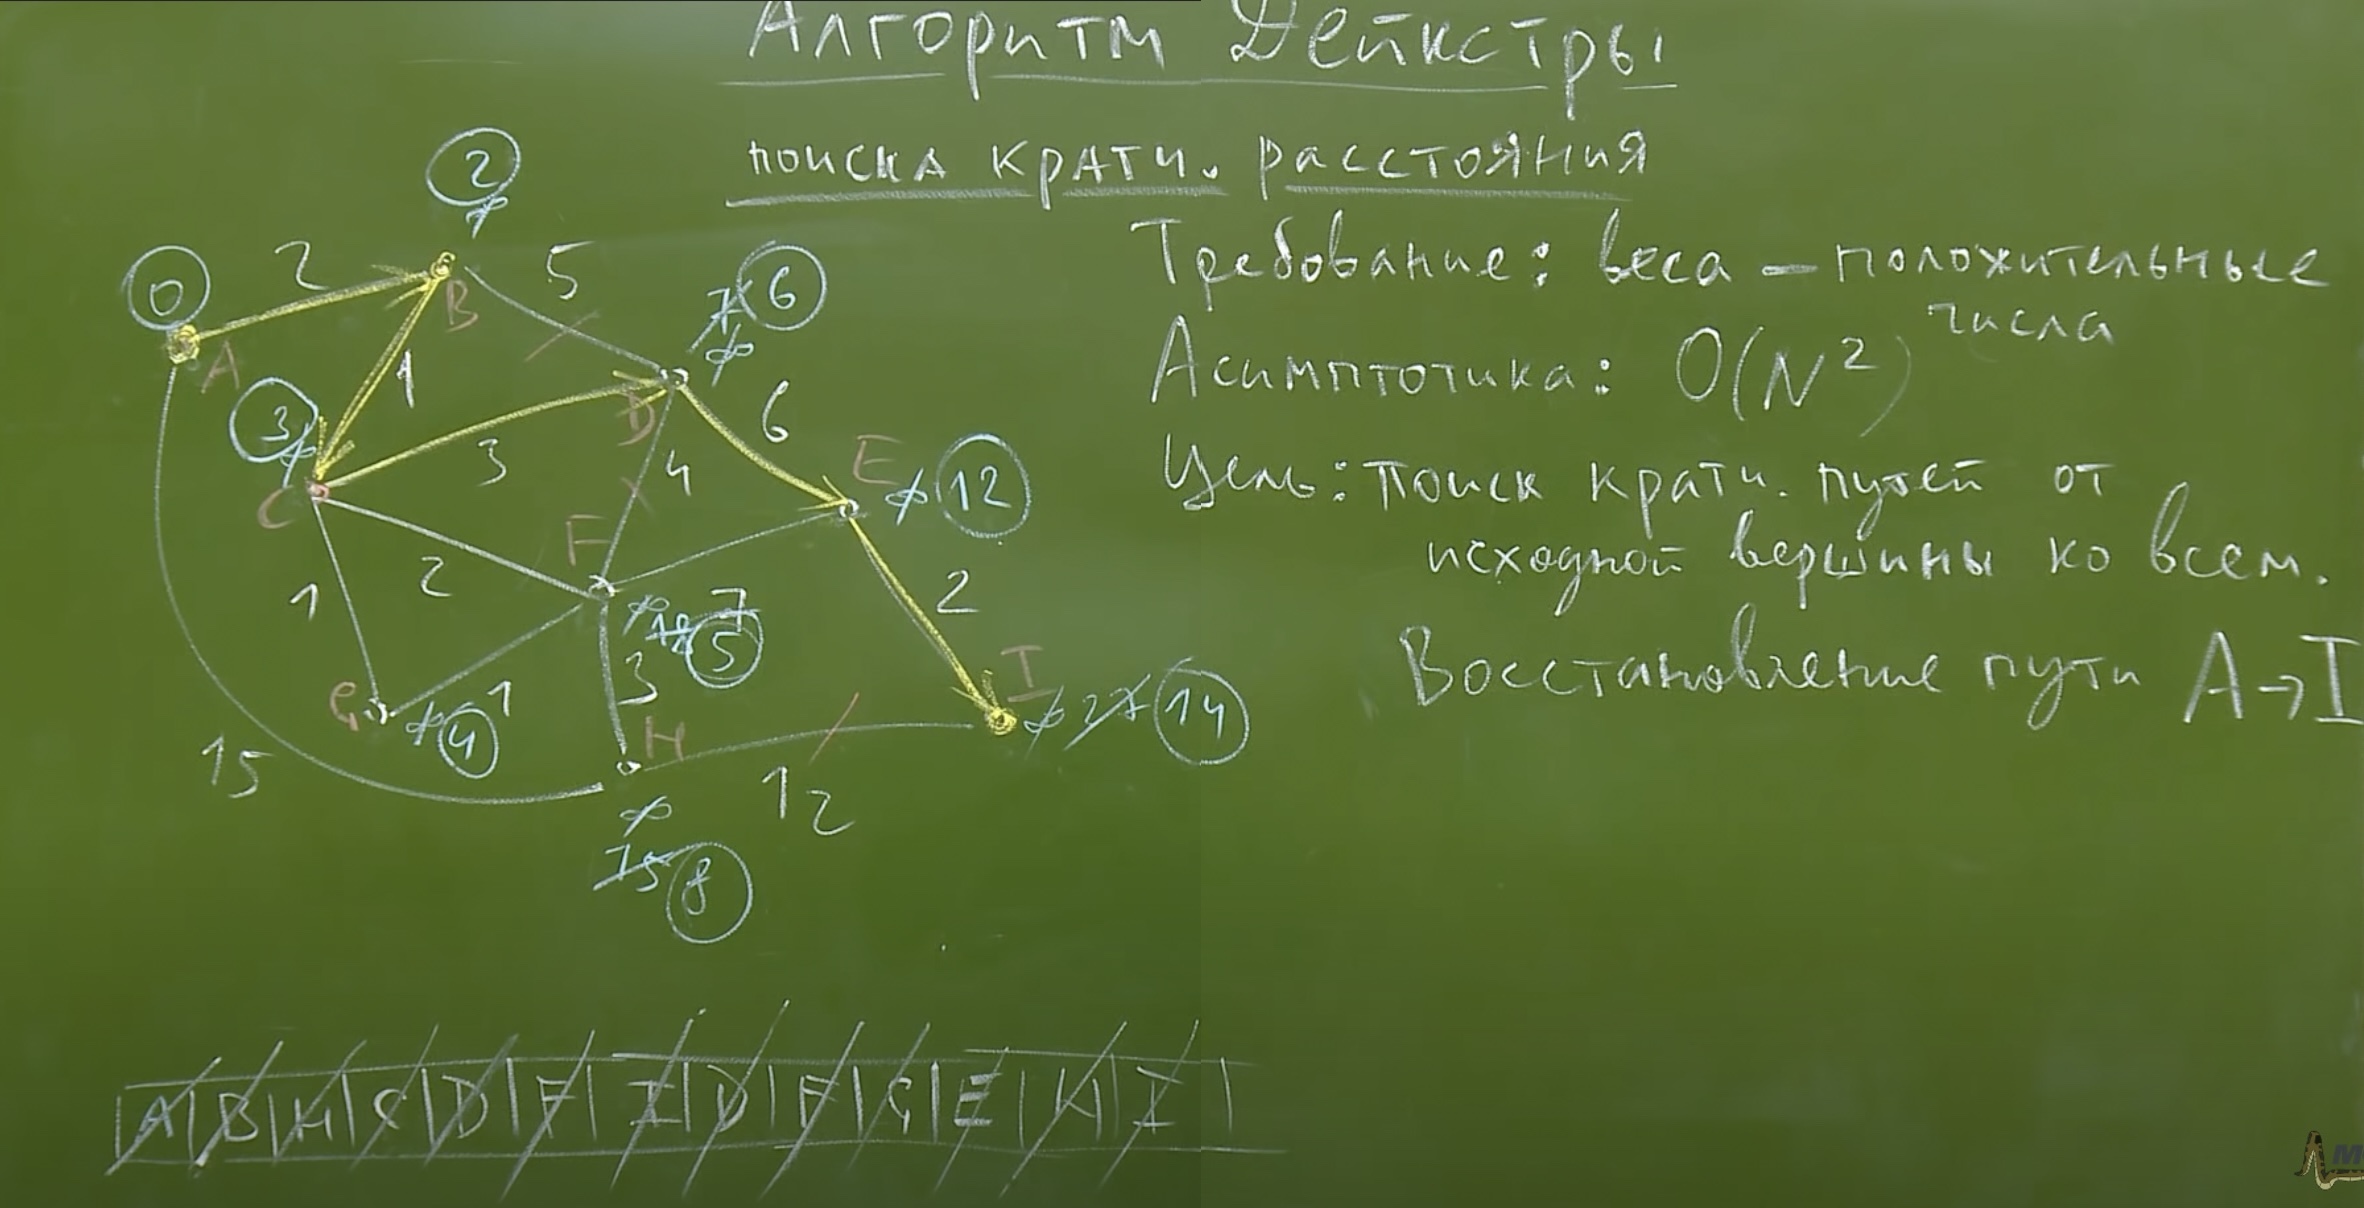 Алгоритм Дейкстры
поиска кратч. расстояния
Требование: веса – положительные
числа
Асимптотика: O(N²)
Цель: Поиск кратч. путей от
исходной вершины ко всем.
Восстановление пути A→I
2
∞
0
2
5
7 6
∞
A
B
1
3
∞
D
6
3
4
E
∞ 12
C
F
2
1
2
∞ 7
5
3
I
G
∞ 4
1
H
∞ 27 14
15
12
∞
15 8
A B H C D F I D F G E H I